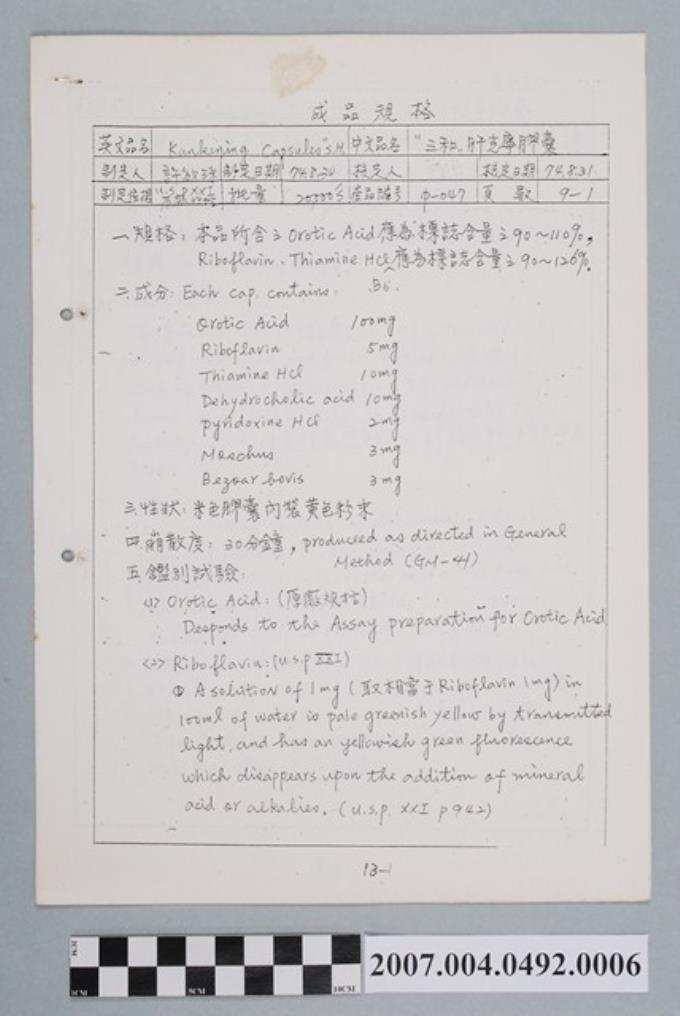 成品規格
英文品名 Kankening Capsules"S.H 中文品名 "三和"肝克寧膠囊
制定人 制定日期 74.8.30 核定人 核定日期 74.8.31
制定依據 U.S.P XXI 批量 產品編號 p-047 頁數 9-1
一、規格：本品所含之Orotic Acid應為標誌含量之90~110%,
Riboflavin、Thiamine HCl應為標誌含量之90~120%.
二、成分：Each cap. contains:
Orotic Acid 100mg
Riboflavin 5mg
Thiamine HCl 10mg
Dehydrocholic acid 10mg
pyridoxine HCl 2mg
Moschus 3mg
Bezoar bovis 3mg
三、性狀：米色膠囊內裝黃色粉末
四、崩散度：30分鐘, produced as directed in General
Method (GM-41)
五、鑑別試驗：
<1> Orotic Acid: (原廠規格)
Desponds to the Assay preparation for Orotic Acid
<2> Riboflavin: (U.S.P XXI)
① A solution of 1mg (取相當于Riboflavin 1mg) in
100ml of water is pale greenish yellow by transmitted
light, and has an yellowish green fluorescence
which disappears upon the addition of mineral
acid or alkalies. (U.S.P. XXI p942)
13-1
2007.004.0492.0006